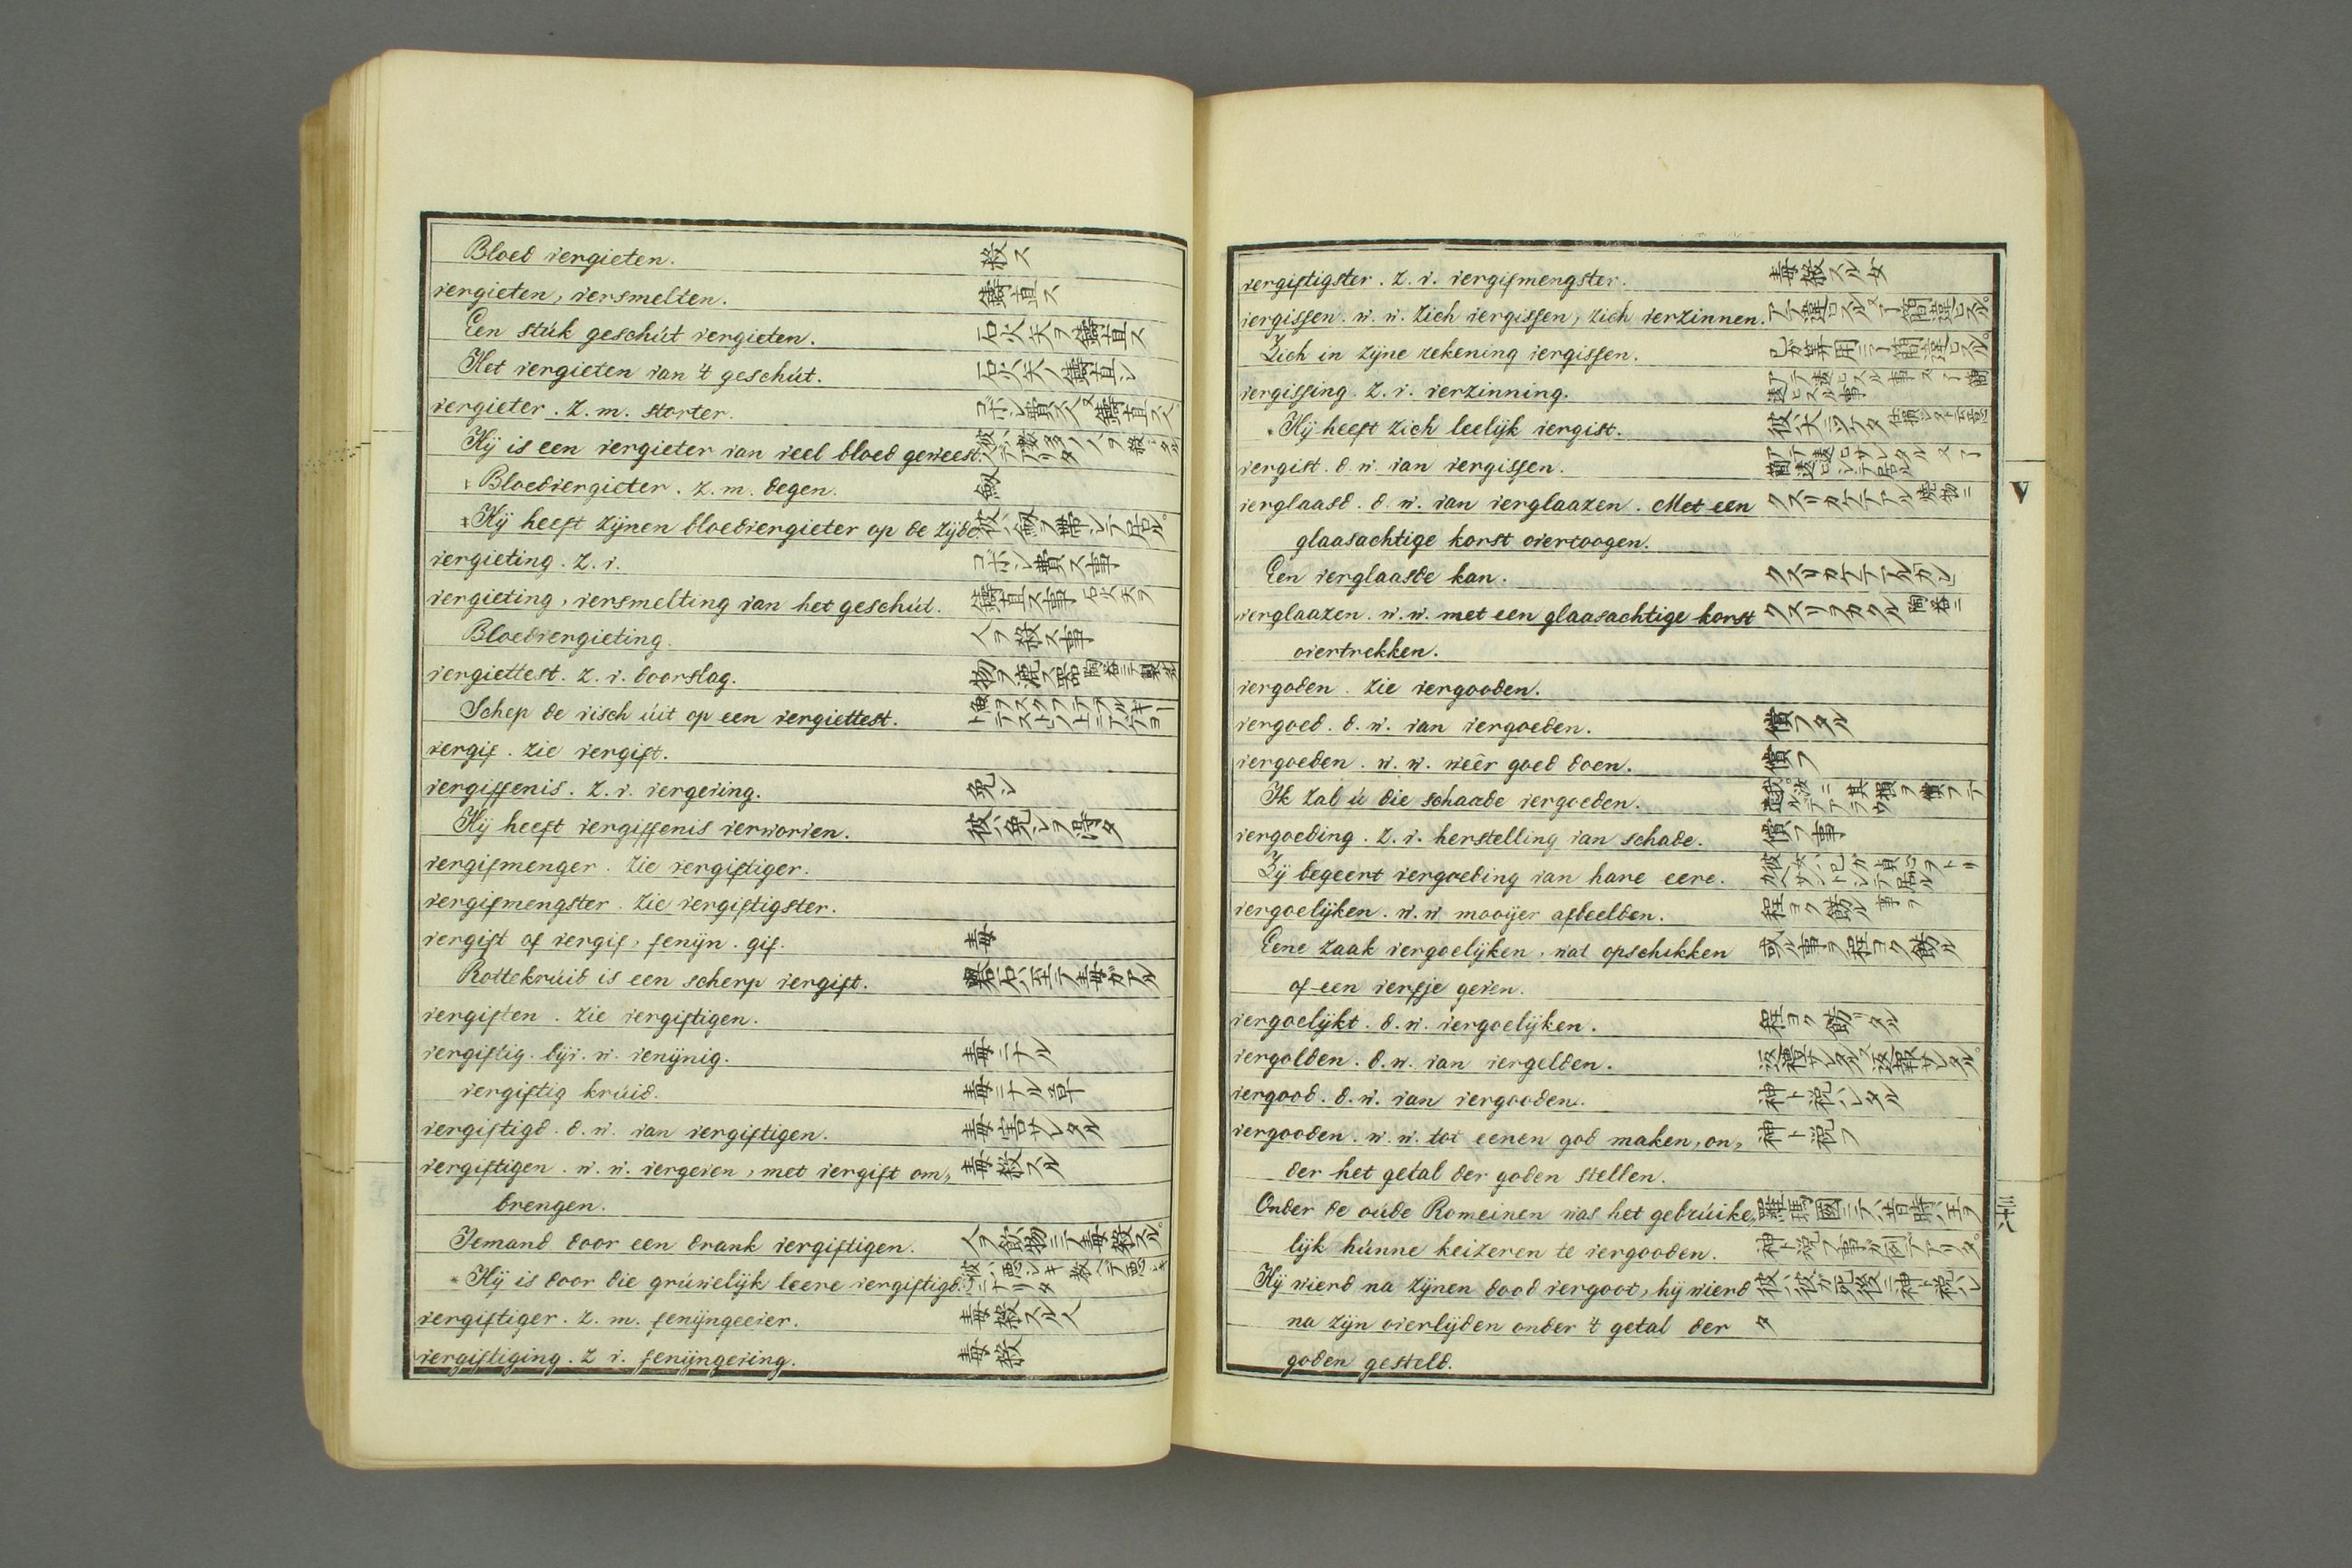 Bloed vergieten. 殺ス
vergieten, versmelten. 鑄直ス
Een stúk geschút vergieten. 石火矢ヲ鑄直ス
Het vergieten van 't geschút. 石火矢ノ鑄直シ
vergieter. z. m. storter. コボシ費ス人 又 鑄直ス人
Hij is een vergieter van veel bloed geweest. 彼ハ數多ノ人ヲ殺シタル
Bloedvergieter. z. m. degen. 劔
Hij heeft zijnen bloedvergieter op de zijde. 彼ハ劔ヲ帶シテ居ル。
vergieting. z. v. コボシ費ス事
vergieting, versmelting van het geschút. 鑄直ス事 石火矢ヲ
Bloedvergieting. 人ヲ殺ス事
vergiettest. z. v. doorslag. 物ヲ漉ス器 陶器ニテ製ス
Schep de visch úit op een vergiettest.
vergif. zie vergift.
vergiffenis. z. v. vergeving. 免シ
Hij heeft vergiffenis verworven. 彼ハ免シヲ得タ
vergifmenger. zie vergiftiger.
vergifmengster. zie vergiftigster.
vergift of vergif, fenijn. gif. 毒
Rottekrúid is een scherp vergift. 礜石ハ至テ毒ガアル
vergiften. zie vergiftigen.
vergiftig. bijv. w. venijnig. 毒ニナル
vergiftig krúid. 毒ニナル草
vergiftigd. d. w. van vergiftigen. 毒害サレタル
vergiftigen. w. w. vergeven, met vergift om„ 毒殺スル
brengen.
Iemand door een drank vergiftigen. 人ヲ飲物ニテ毒殺スル。
Hij is door die grúwelijk leere vergiftigd.
vergiftiger. z. m. fenijngeever. 毒殺スル人
vergiftiging. z v. fenijngeving. 毒殺
vergiftigster. z. v. vergifmengster. 毒殺スル女
vergissen. w. w. zich vergissen, zich verzinnen. アテ違ヒスル 又 了簡違ヒスル。
Zich in zijne rekening vergissen. 己ガ算用ニ了簡違ヒスル。
vergissing. z. v. verzinning. アテ違ヒスル事 又 了簡違ヒスル事
Hij heeft zich leelijk vergist.
vergist. d. w. van vergissen.
verglaasd. d. w. van verglaazen. Met een クスリカケテアル 燒物ニ
glaasachtige korst overtoogen.
Een verglaasde kan. クスリカケテアルカン
verglaazen. w. w. met een glaasachtige korst クスリヲカクル 陶器ニ
overtrekken.
vergoden. zie vergooden.
vergoed. d. w. van vergoeden. 償フタル
vergoeden. w. w. wêêr goed doen. 償フ
Ik zal ú die schaade vergoeden.
vergoeding. z. v. herstelling van schade. 償フ事
Zij begeert vergoeding van hare eere.
vergoelijken. w. w. mooijer afbeelden. 程ヨク餝ル 事ヲ
Eene zaak vergoelijken, wat opschikken 或ル事ヲ程ヨク餝ル
of een verfje geven.
vergoelijkt. d. w. vergoelijken. 程ヨク餝リタル
vergolden. d. w. van vergelden.
vergood. d. w. van vergooden. 神ト祝ハレタル
vergooden. w. w. tot eenen god maken, on„ 神ト祝フ
der het getal der goden stellen.
Onder de oúde Romeinen was het gebrúike„ 羅瑪國ニテハ昔時ハ王ヲ
lijk húnne keizeren te vergooden. 神ト祝フ事ガ例デアリタ。
Hij wierd na zijnen dood vergoot, hij wierd 彼ハ彼ガ死後ニ神ト祝ハレ
na zijn overlijden onder 't getal der タ
goden gesteld.
V